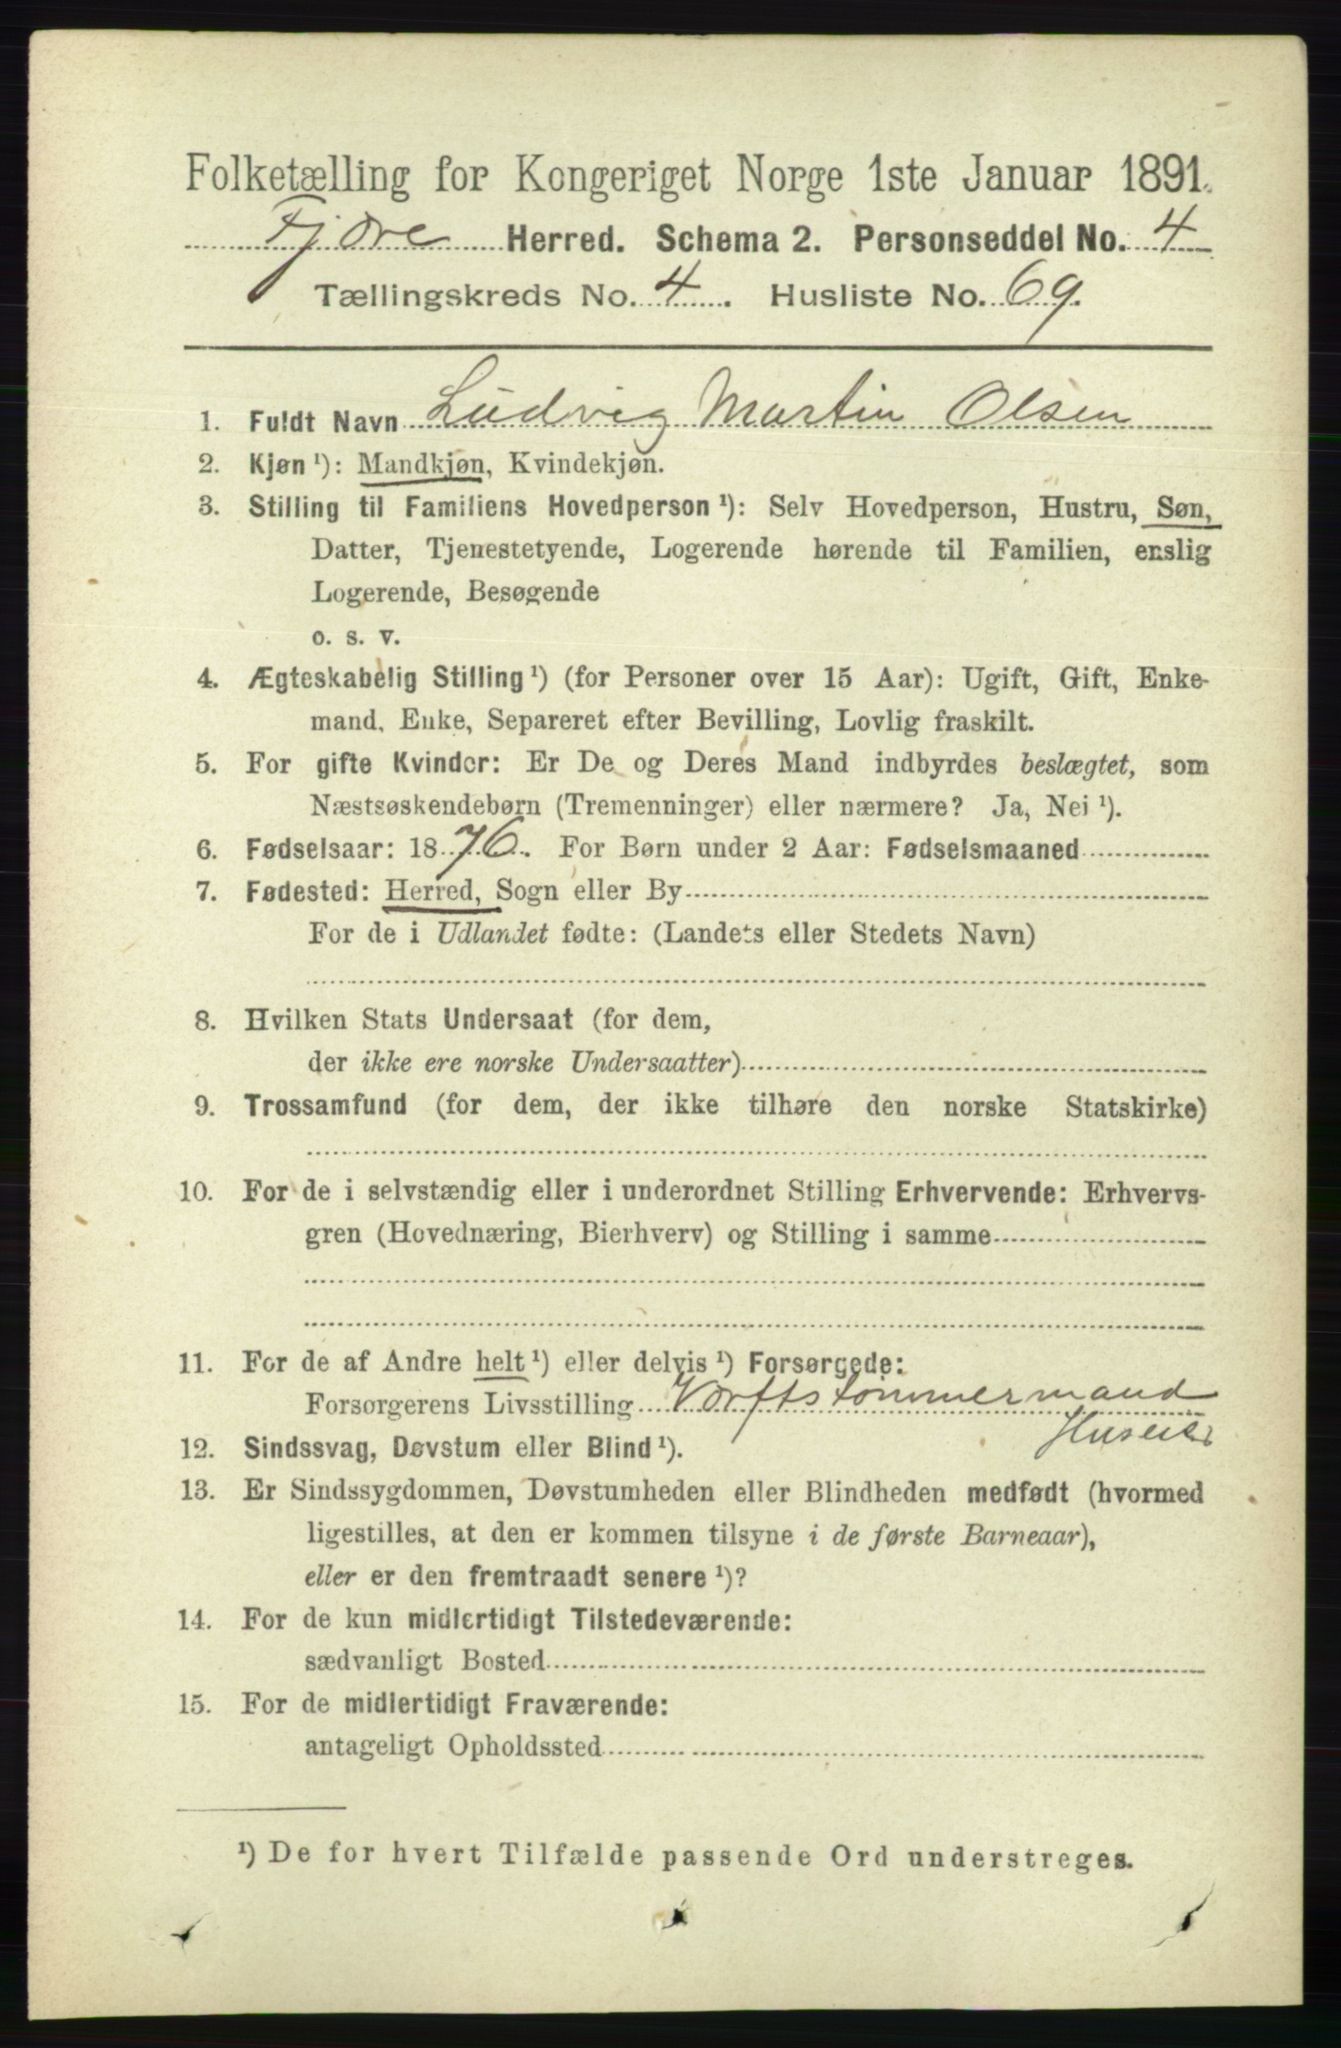 Folketælling for Kongeriget Norge 1ste Januar 1891.
Fjære Herred. Schema 2. Personseddel No. 4
Tællingskreds No. 4. Husliste No. 69.
1. Fuldt Navn Ludvig Martin Olsen
2. Kjøn ¹): Mandkjøn, Kvindekjøn.
3. Stilling til Familiens Hovedperson ¹): Selv Hovedperson, Hustru, Søn,
Datter, Tjenestetyende, Logerende hørende til Familien, enslig
Logerende, Besøgende
o. s. v.
4. Ægteskabelig Stilling ¹) (for Personer over 15 Aar): Ugift, Gift, Enke-
mand, Enke, Separeret efter Bevilling, Lovlig fraskilt.
5. For gifte Kvinder: Er De og Deres Mand indbyrdes beslægtet, som
Næstsøskendebørn (Tremenninger) eller nærmere? Ja, Nei ¹).
6. Fødselsaar: 1876. For Børn under 2 Aar: Fødselsmaaned
7. Fødested: Herred, Sogn eller By
For de i Udlandet fødte: (Landets eller Stedets Navn)
8. Hvilken Stats Undersaat (for dem,
der ikke ere norske Undersaatter)
9. Trossamfund (for dem, der ikke tilhøre den norske Statskirke)
10. For de i selvstændig eller i underordnet Stilling Erhvervende: Erhvervs-
gren (Hovednæring, Bierhverv) og Stilling i samme
11. For de af Andre helt ¹) eller delvis ¹) Forsørgede:
Forsørgerens Livsstilling Værftstømmermand
Huseier
12. Sindssvag, Døvstum eller Blind ¹).
13. Er Sindssygdommen, Døvstumheden eller Blindheden medfødt (hvormed
ligestilles, at den er kommen tilsyne i de første Barneaar),
eller er den fremtraadt senere ¹)?
14. For de kun midlertidigt Tilstedeværende:
sædvanligt Bosted
15. For de midlertidigt Fraværende:
antageligt Opholdssted
¹) De for hvert Tilfælde passende Ord understreges.